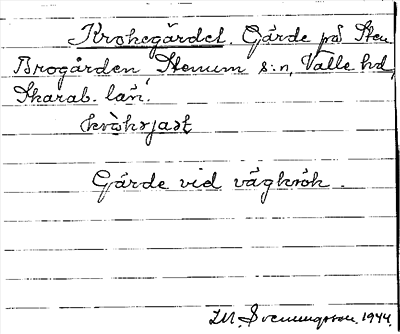 Krokegärdet. Gärde på Sten
Brogården Stenum s:n, Valle hd,
Skarab. län.
Gärde vid vägkrök.
M. Svenungsson 1944.